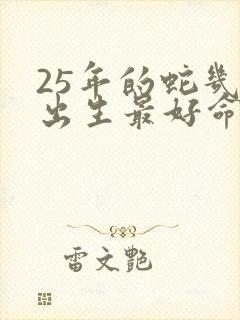 25年的蛇幾
出生最好命
雷文艷